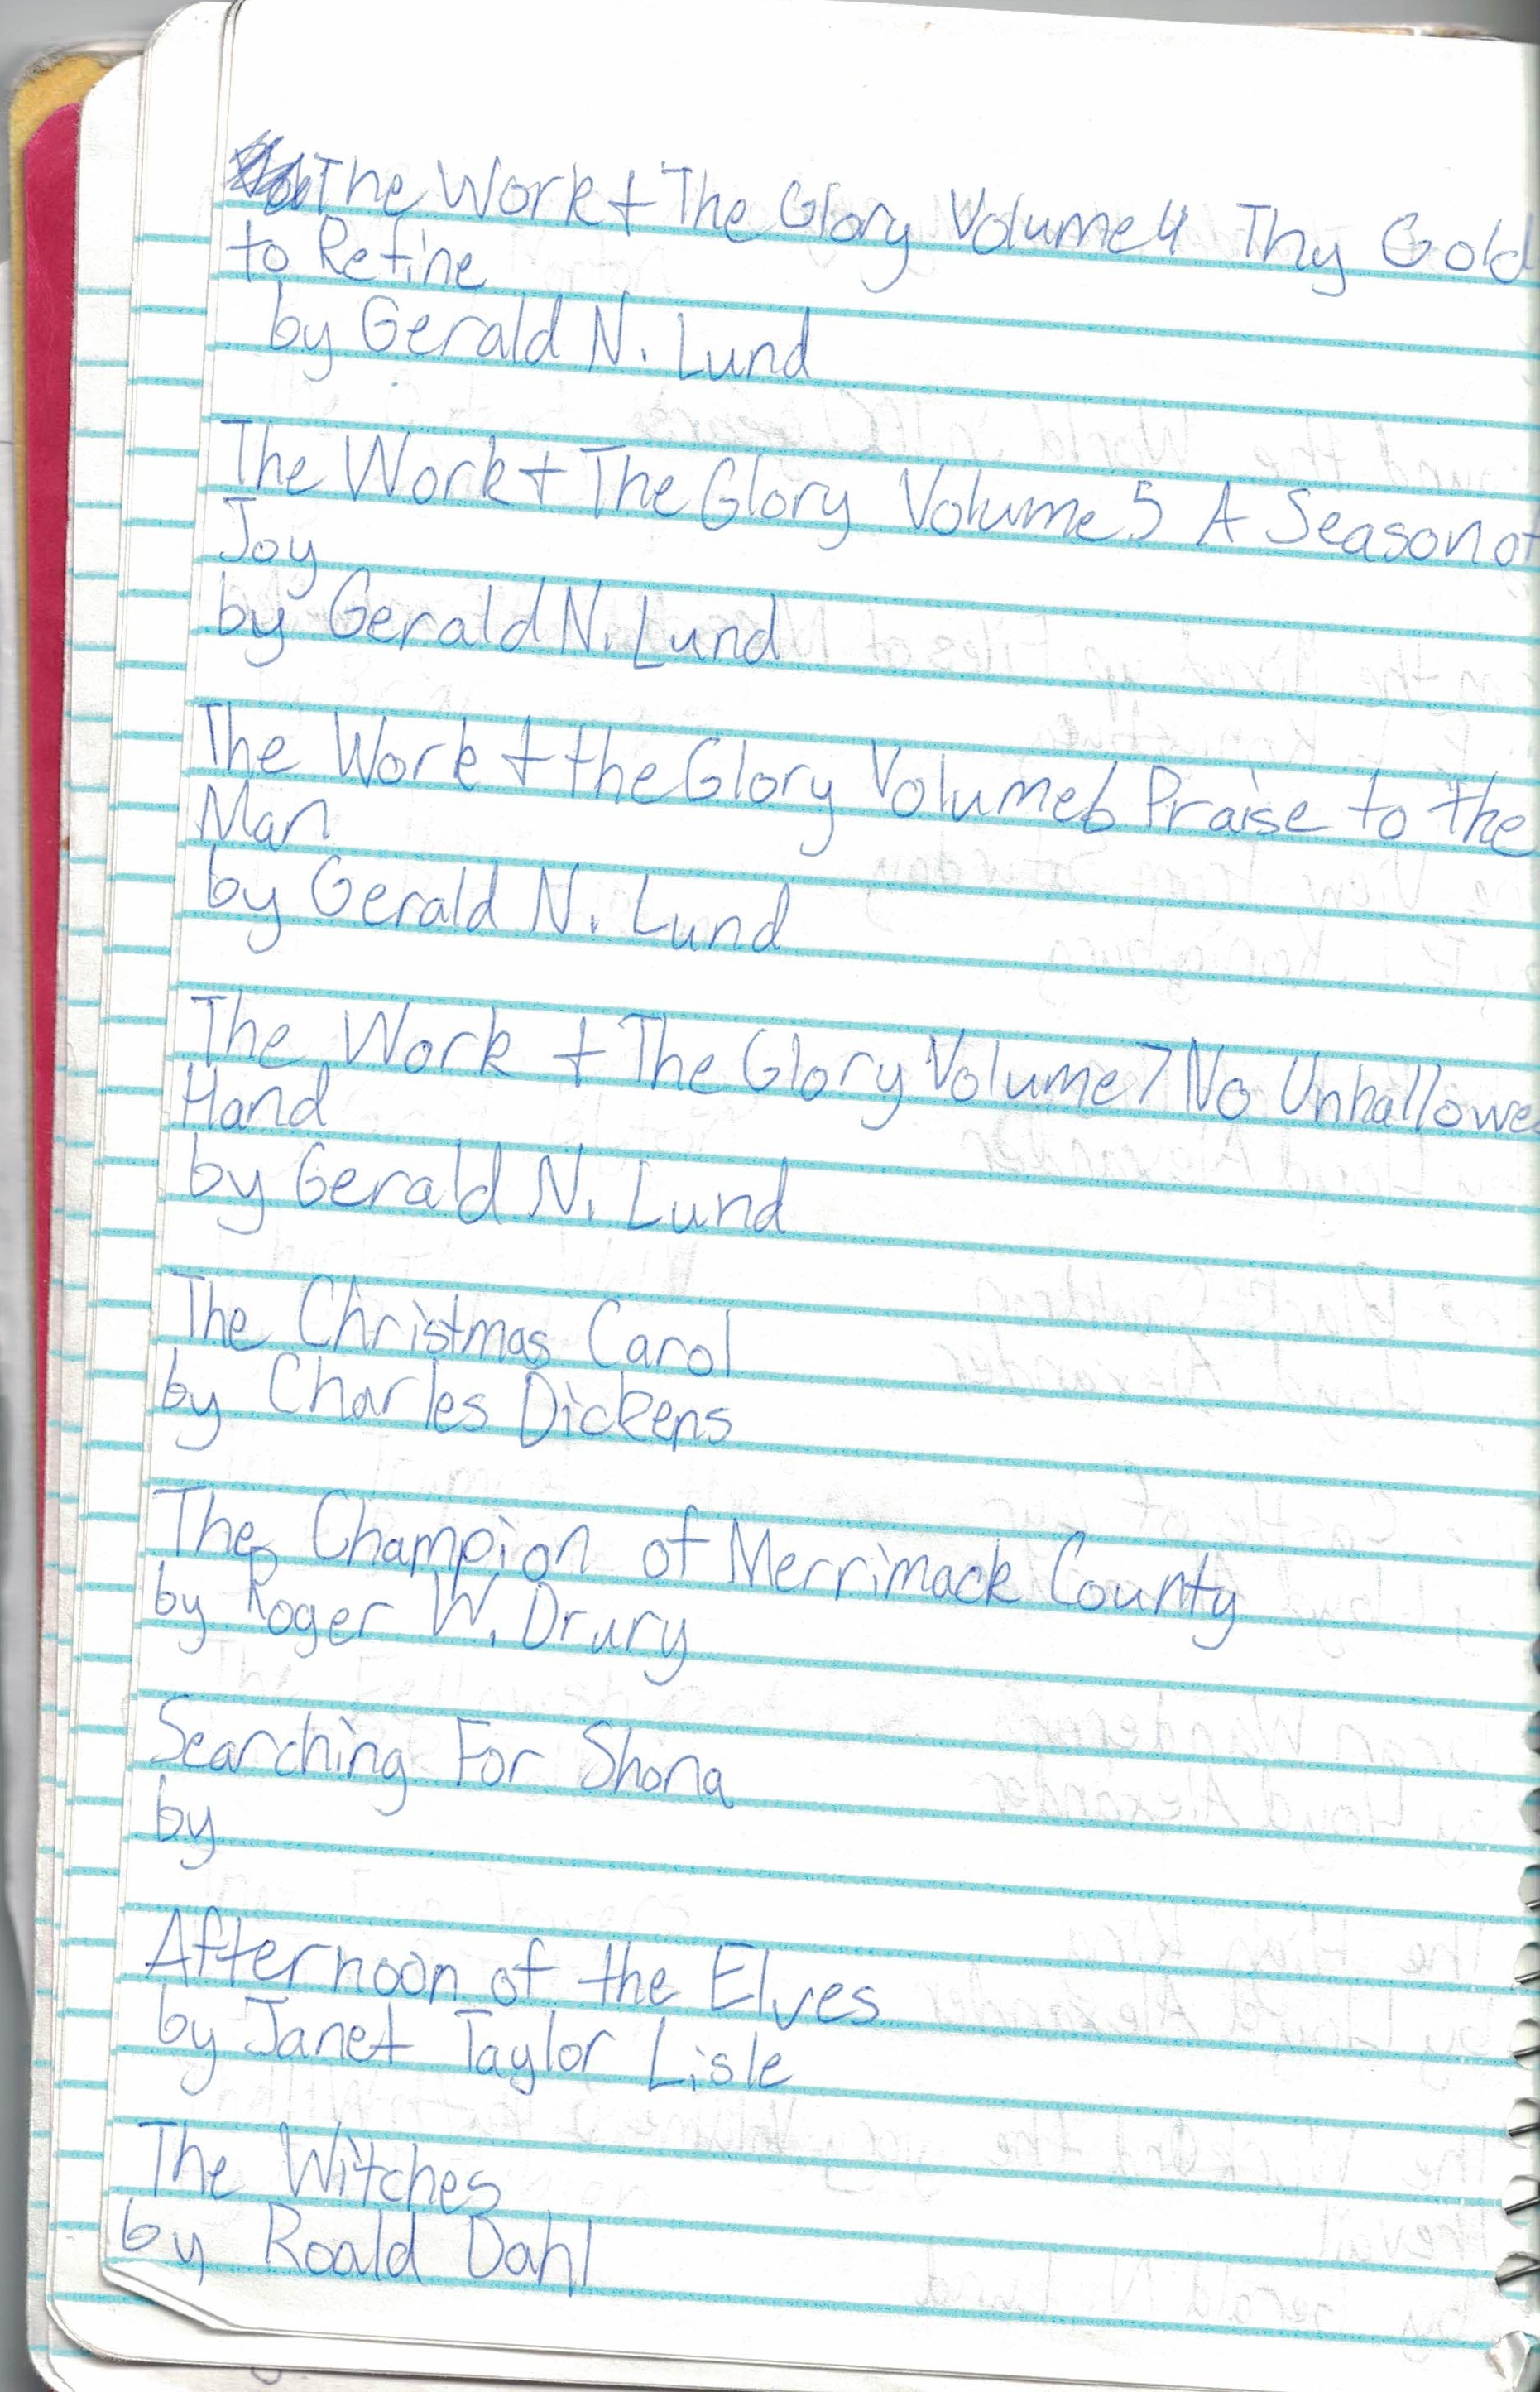 The Work + The Glory Volume 4 Thy Gold
to Refine
by Gerald N. Lund
The Work + The Glory Volume 5 A Season of
Joy
by Gerald N. Lund
The Work + the Glory Volume 6 Praise to the
Man
by Gerald N. Lund
The Work + The Glory Volume 7 No Unhallowed
Hand
by Gerald N. Lund
The Christmas Carol
by Charles Dickens
The Champion of Merrimack County
by Roger W. Drury
Searching For Shona
by
Afternoon of the Elves
by Janet Taylor Lisle
The Witches
by Roald Dahl